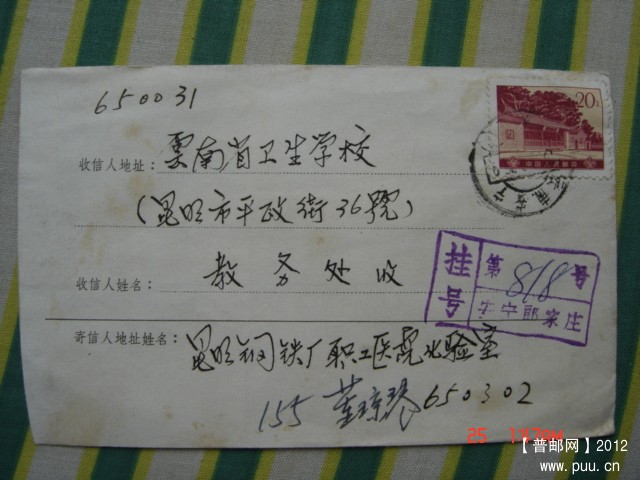 650031
20分
收信人地址：雲南省卫生学校
中国人民邮政
（昆明市平政街36號）
收信人姓名：教务处收
挂号
第818号
安宁郎家庄
寄信人地址姓名：昆明钢铁厂职工医院化验室
155 董琼琴 650302
【普邮网】2012
www.puu.cn